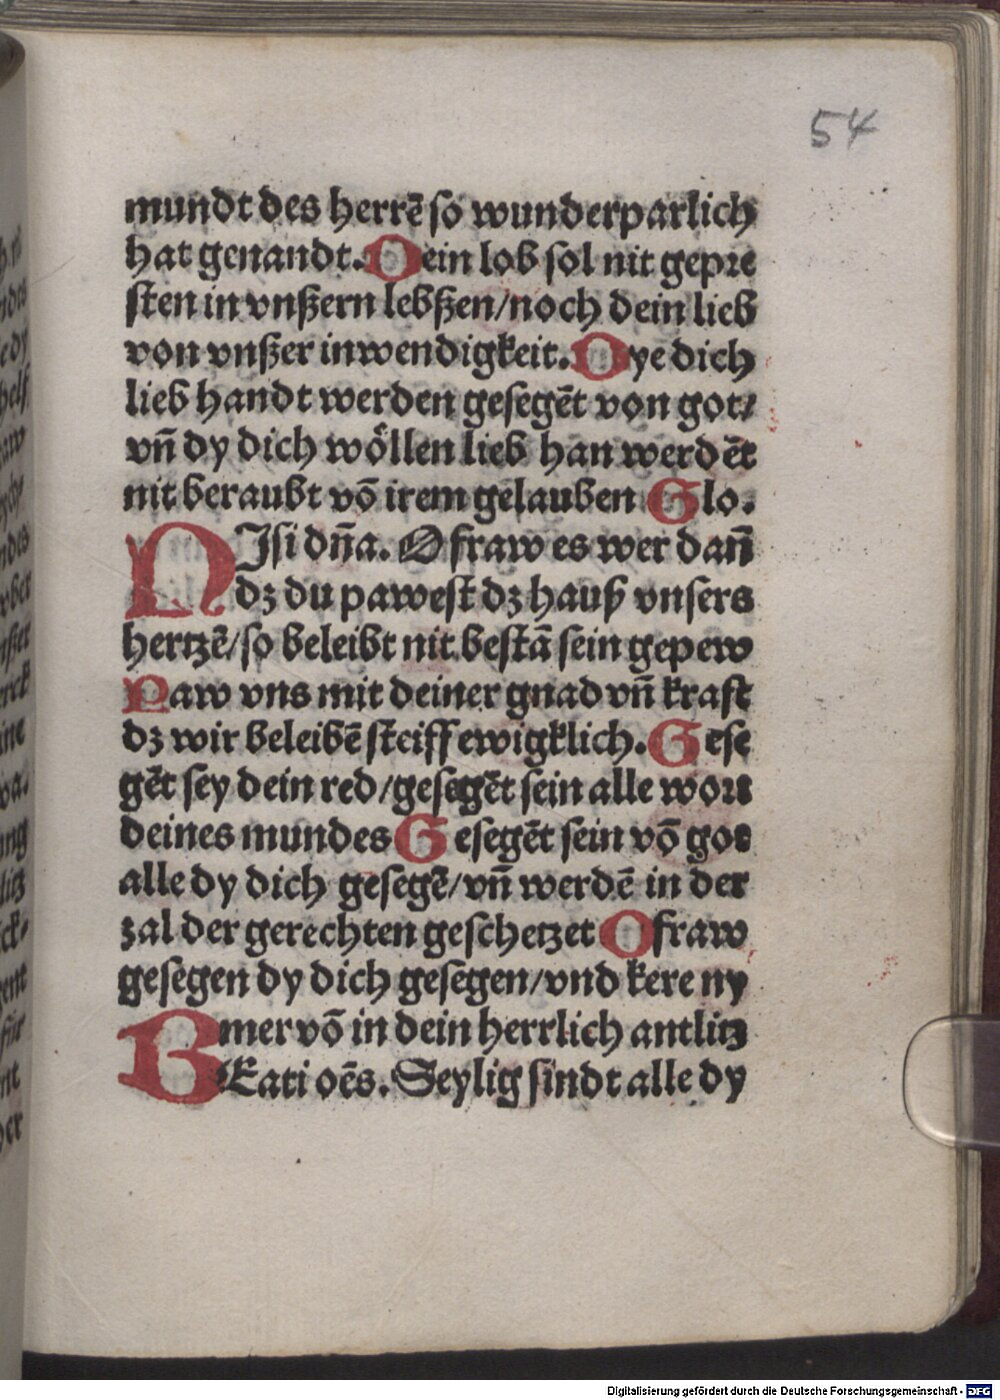 54
mundt des herrē so wunderparlich
hat genandt. Dein lob sol nit gepre
sten in vnßern lebßen/noch dein lieb
von vnßer inwendigkeit. Dye dich
lieb handt werden gesegēt von got/
vñ dy dich wöllen lieb han werdēt
nit beraubt vō irem gelauben Glo.
NIsi dña. O fraw es wer dañ
dz du pawest dz hauß vnsers
hertzē/so beleibt nit bestā sein gepew
Paw vns mit deiner gnad vñ kraft
dz wir beleibē steiff ewigklich. Gese
gēt sey dein red/gesegēt sein alle wort
deines mundes Gesegēt sein vō got
alle dy dich gesegē/vñ werdē in der
zal der gerechten geschetzet O fraw
gesegen dy dich gesegen/vnd kere ny
mer vō in dein herrlich antlitz
BEati oēs. Seylig sindt alle dy
Digitalisierung gefördert durch die Deutsche Forschungsgemeinschaft - DFG